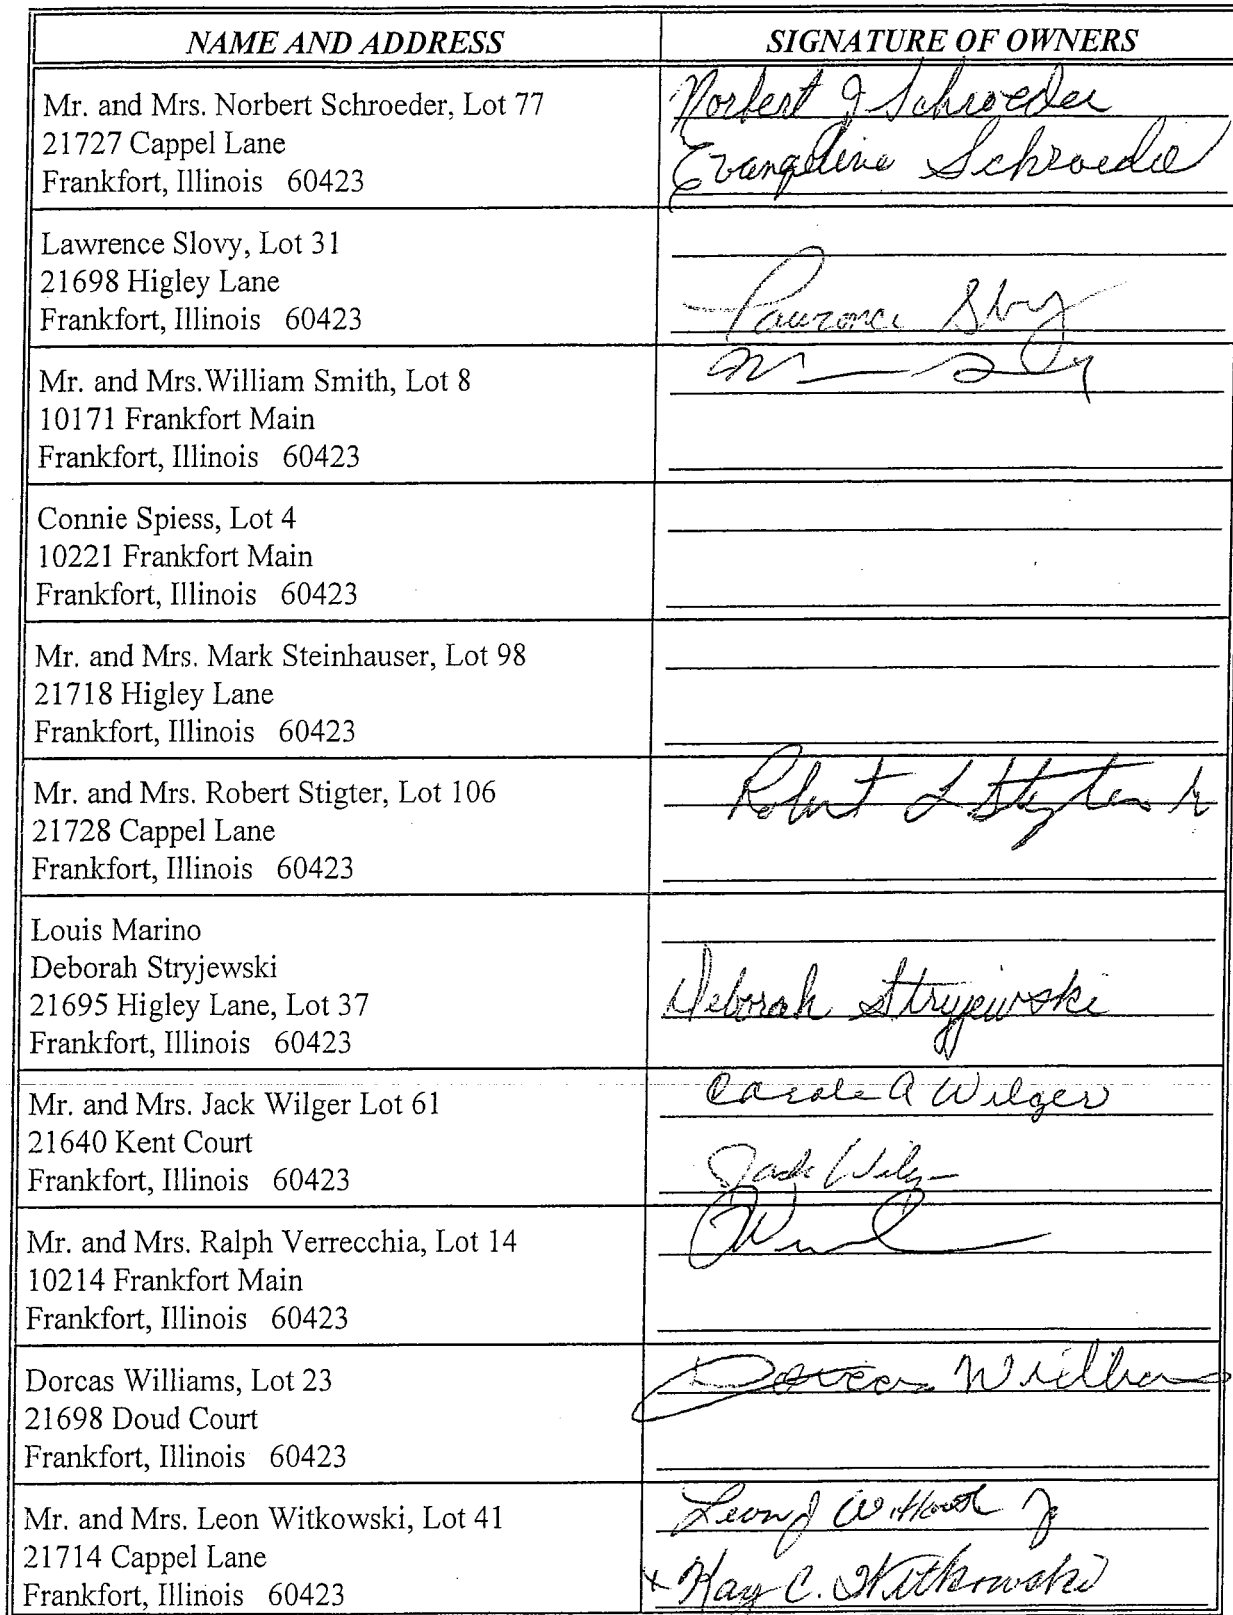 NAME AND ADDRESS
SIGNATURE OF OWNERS
Mr. and Mrs. Norbert Schroeder, Lot 77
21727 Cappel Lane
Frankfort, Illinois 60423
Norbert J Schroeder
Evangeline Schroeder
Lawrence Slovy, Lot 31
21698 Higley Lane
Frankfort, Illinois 60423
Lawrence Slovy
Mr. and Mrs.William Smith, Lot 8
10171 Frankfort Main
Frankfort, Illinois 60423
Connie Spiess, Lot 4
10221 Frankfort Main
Frankfort, Illinois 60423
Mr. and Mrs. Mark Steinhauser, Lot 98
21718 Higley Lane
Frankfort, Illinois 60423
Mr. and Mrs. Robert Stigter, Lot 106
21728 Cappel Lane
Frankfort, Illinois 60423
Robert L Stigter Jr
Louis Marino
Deborah Stryjewski
21695 Higley Lane, Lot 37
Frankfort, Illinois 60423
Deborah Stryjewski
Mr. and Mrs. Jack Wilger Lot 61
21640 Kent Court
Frankfort, Illinois 60423
Carole A Wilger
Jack Wilger
Mr. and Mrs. Ralph Verrecchia, Lot 14
10214 Frankfort Main
Frankfort, Illinois 60423
Dorcas Williams, Lot 23
21698 Doud Court
Frankfort, Illinois 60423
Dorcas Williams
Mr. and Mrs. Leon Witkowski, Lot 41
21714 Cappel Lane
Frankfort, Illinois 60423
Leon J Witkowski Jr
x Kay C. Witkowski